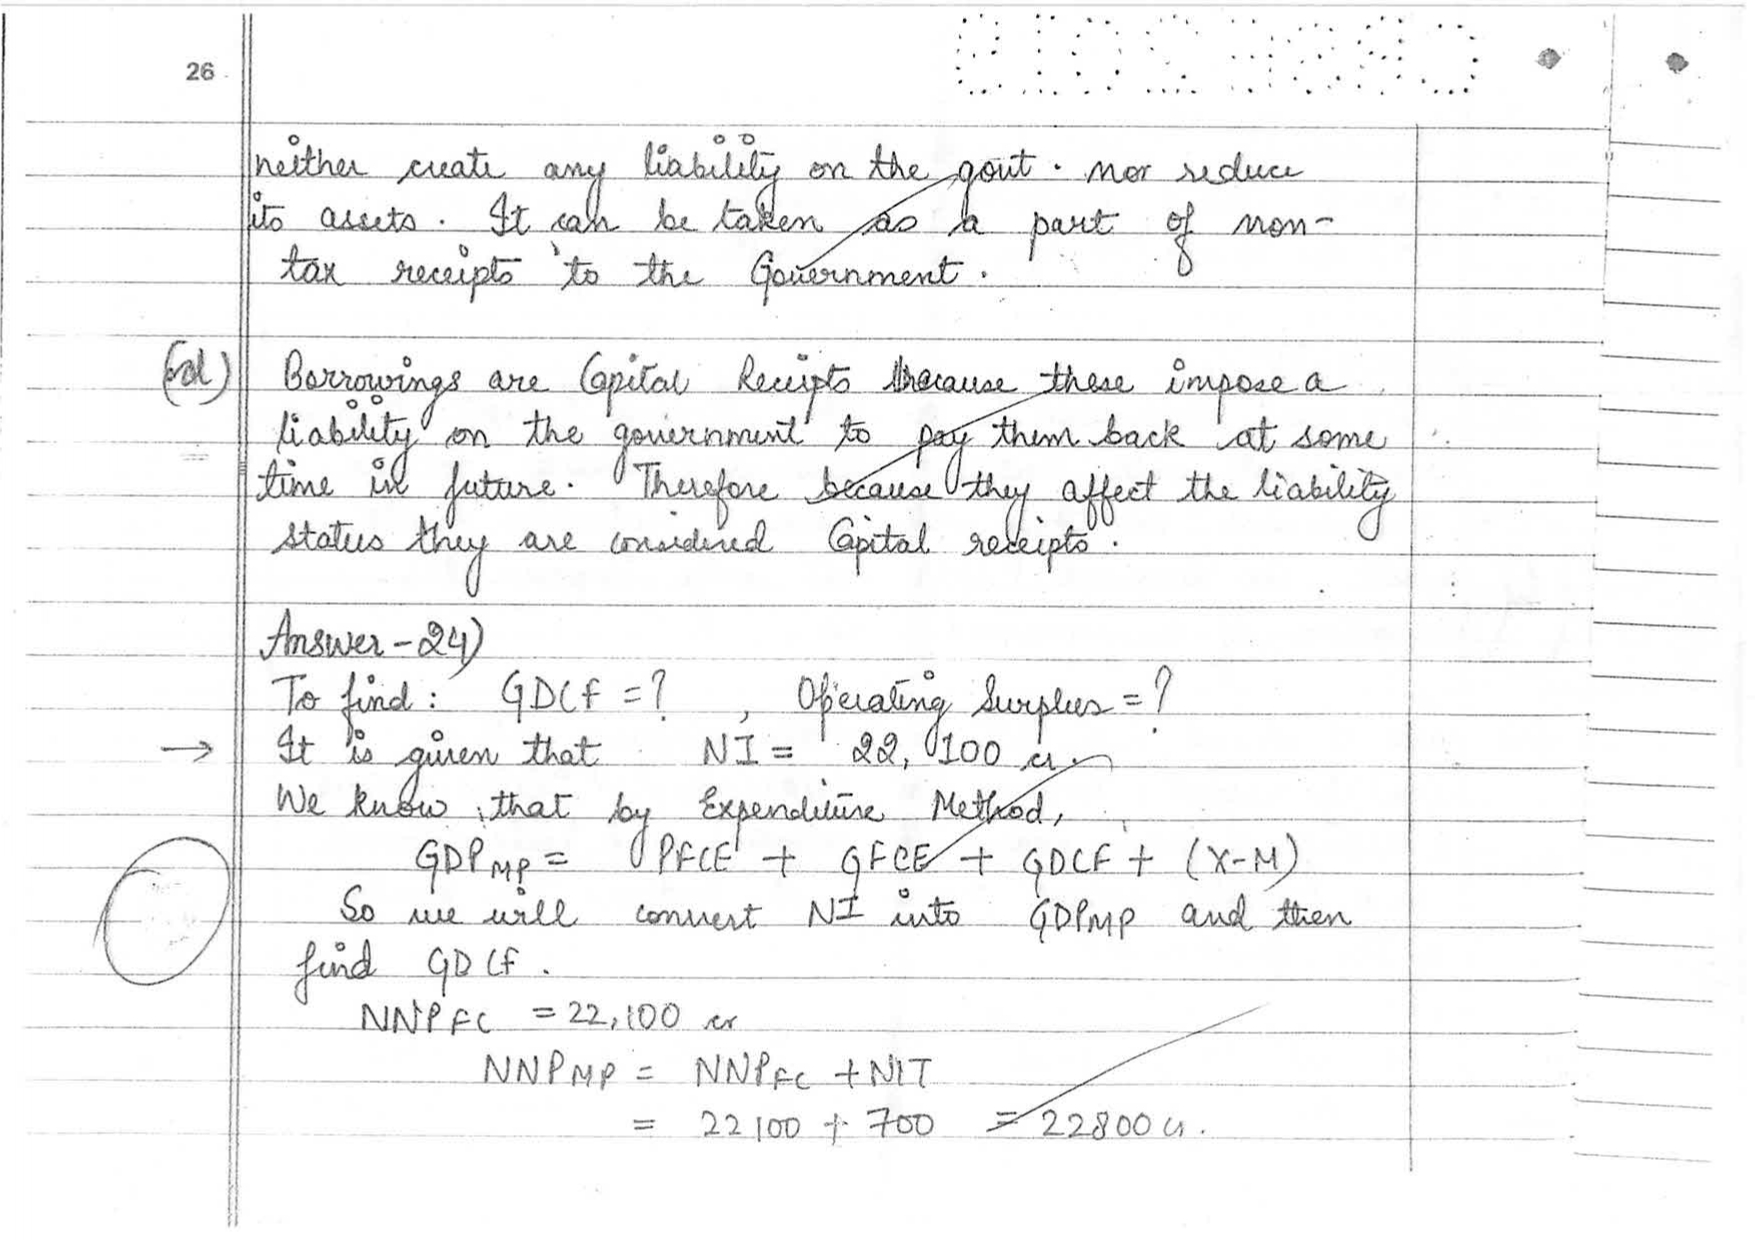 26
neither create any liability on the govt. nor reduce
its assets. It can be taken as a part of non-
tax receipts to the Government.
(d) Borrowings are Capital Receipts because these impose a
liability on the government to pay them back at some
time in future. Therefore because they affect the liability
status they are considered Capital receipts.
Answer-24)
To find: GDCF = ? , Operating Surplus = ?
→ It is given that NI = 22,100 cr.
We know that by Expenditure Method,
GDPMP = PFCE + GFCE + GDCF + (X-M)
So we will convert NI into GDPMP and then
find GDCF.
NNPFC = 22,100 cr
NNPMP = NNPFC + NIT
= 22100 + 700 = 22800 cr.